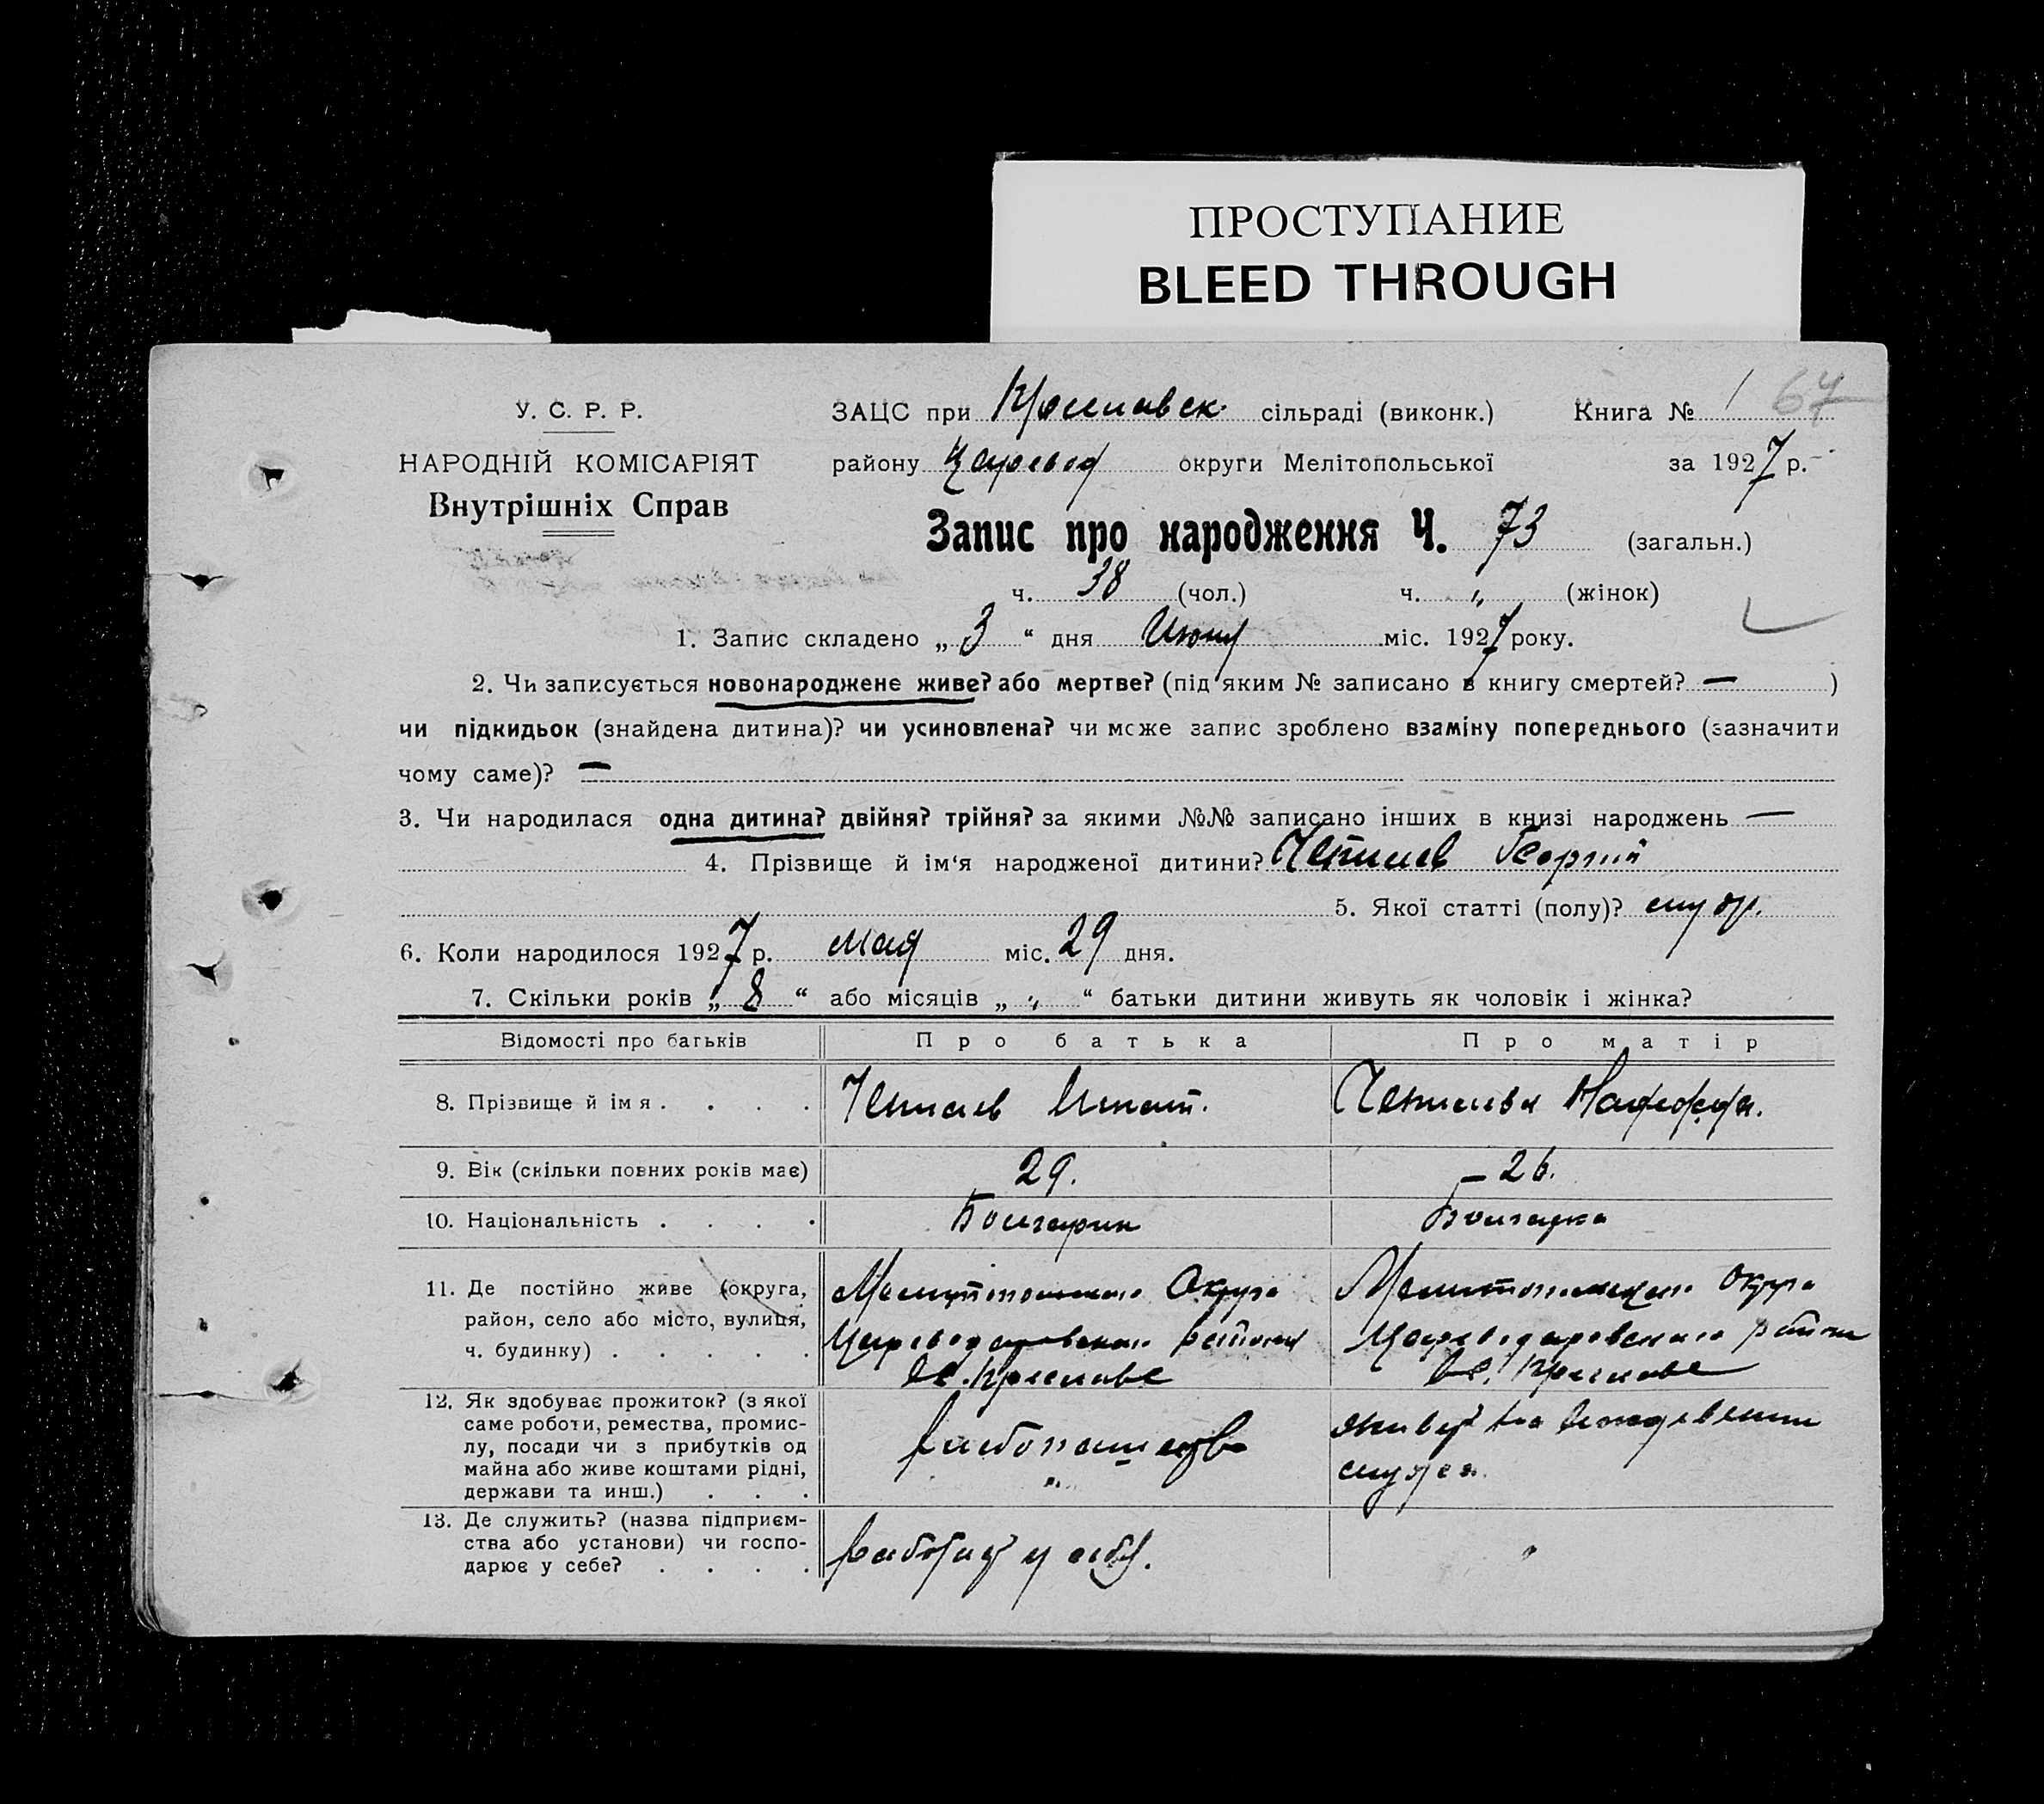 ПРОСТУПАНИЕ
BLEED THROUGH
У. С. Р. Р.
НАРОДНІЙ КОМІСАРІЯТ
Внутрішніх Справ
ЗАЦС при сільраді (виконк.) Книга № 1 64
району Царевод округи Мелітопольської за 1927 р.
Запис про народження Ч. 73 (загальн.)
ч. 38 (чол.) ч. „ (жінок)
1. Запис складено „ 3 “ дня Июня міс. 1927 року.
2. Чи записується новонароджене живе? або мертве? (під яким № записано в книгу смертей? — )
чи підкидьок (знайдена дитина)? чи усиновлена? чи може запис зроблено взаміну попереднього (зазначити
чому саме)? —
3. Чи народилася одна дитина? двійня? трійня? за якими №№ записано інших в книзі народжень —
4. Прізвище й ім‘я народженої дитини? Георгий
5. Якої статті (полу)?
6. Коли народилося 1927 р. мая міс. 29 дня.
7. Скільки років „ 8 “ або місяців „ „ “ батьки дитини живуть як чоловік і жінка?
Відомості про батьків Про батька Про матір
8. Прізвище й імя . . . .
9. Вік (скільки повних років має) 29. – 26.
10. Національність . . . . Болгарин Болгарка
11. Де постійно живе (округа, район, село або місто, вулиця, ч. будинку) . . . . .
Мелитопольского Округа
Цареводаровского района
Мелитопольского Округа
Цареводаровского района
12. Як здобуває прожиток? (з якої
саме роботи, ремества, промис-
лу, посади чи з прибутків од
майна або живе коштами рідні,
держави та инш.) . . .
хлебопашество
живет на иждевении
мужа.
13. Де служить? (назва підприєм-
ства або установи) чи госпо-
дарює у себе? . . . .
работает у себя.